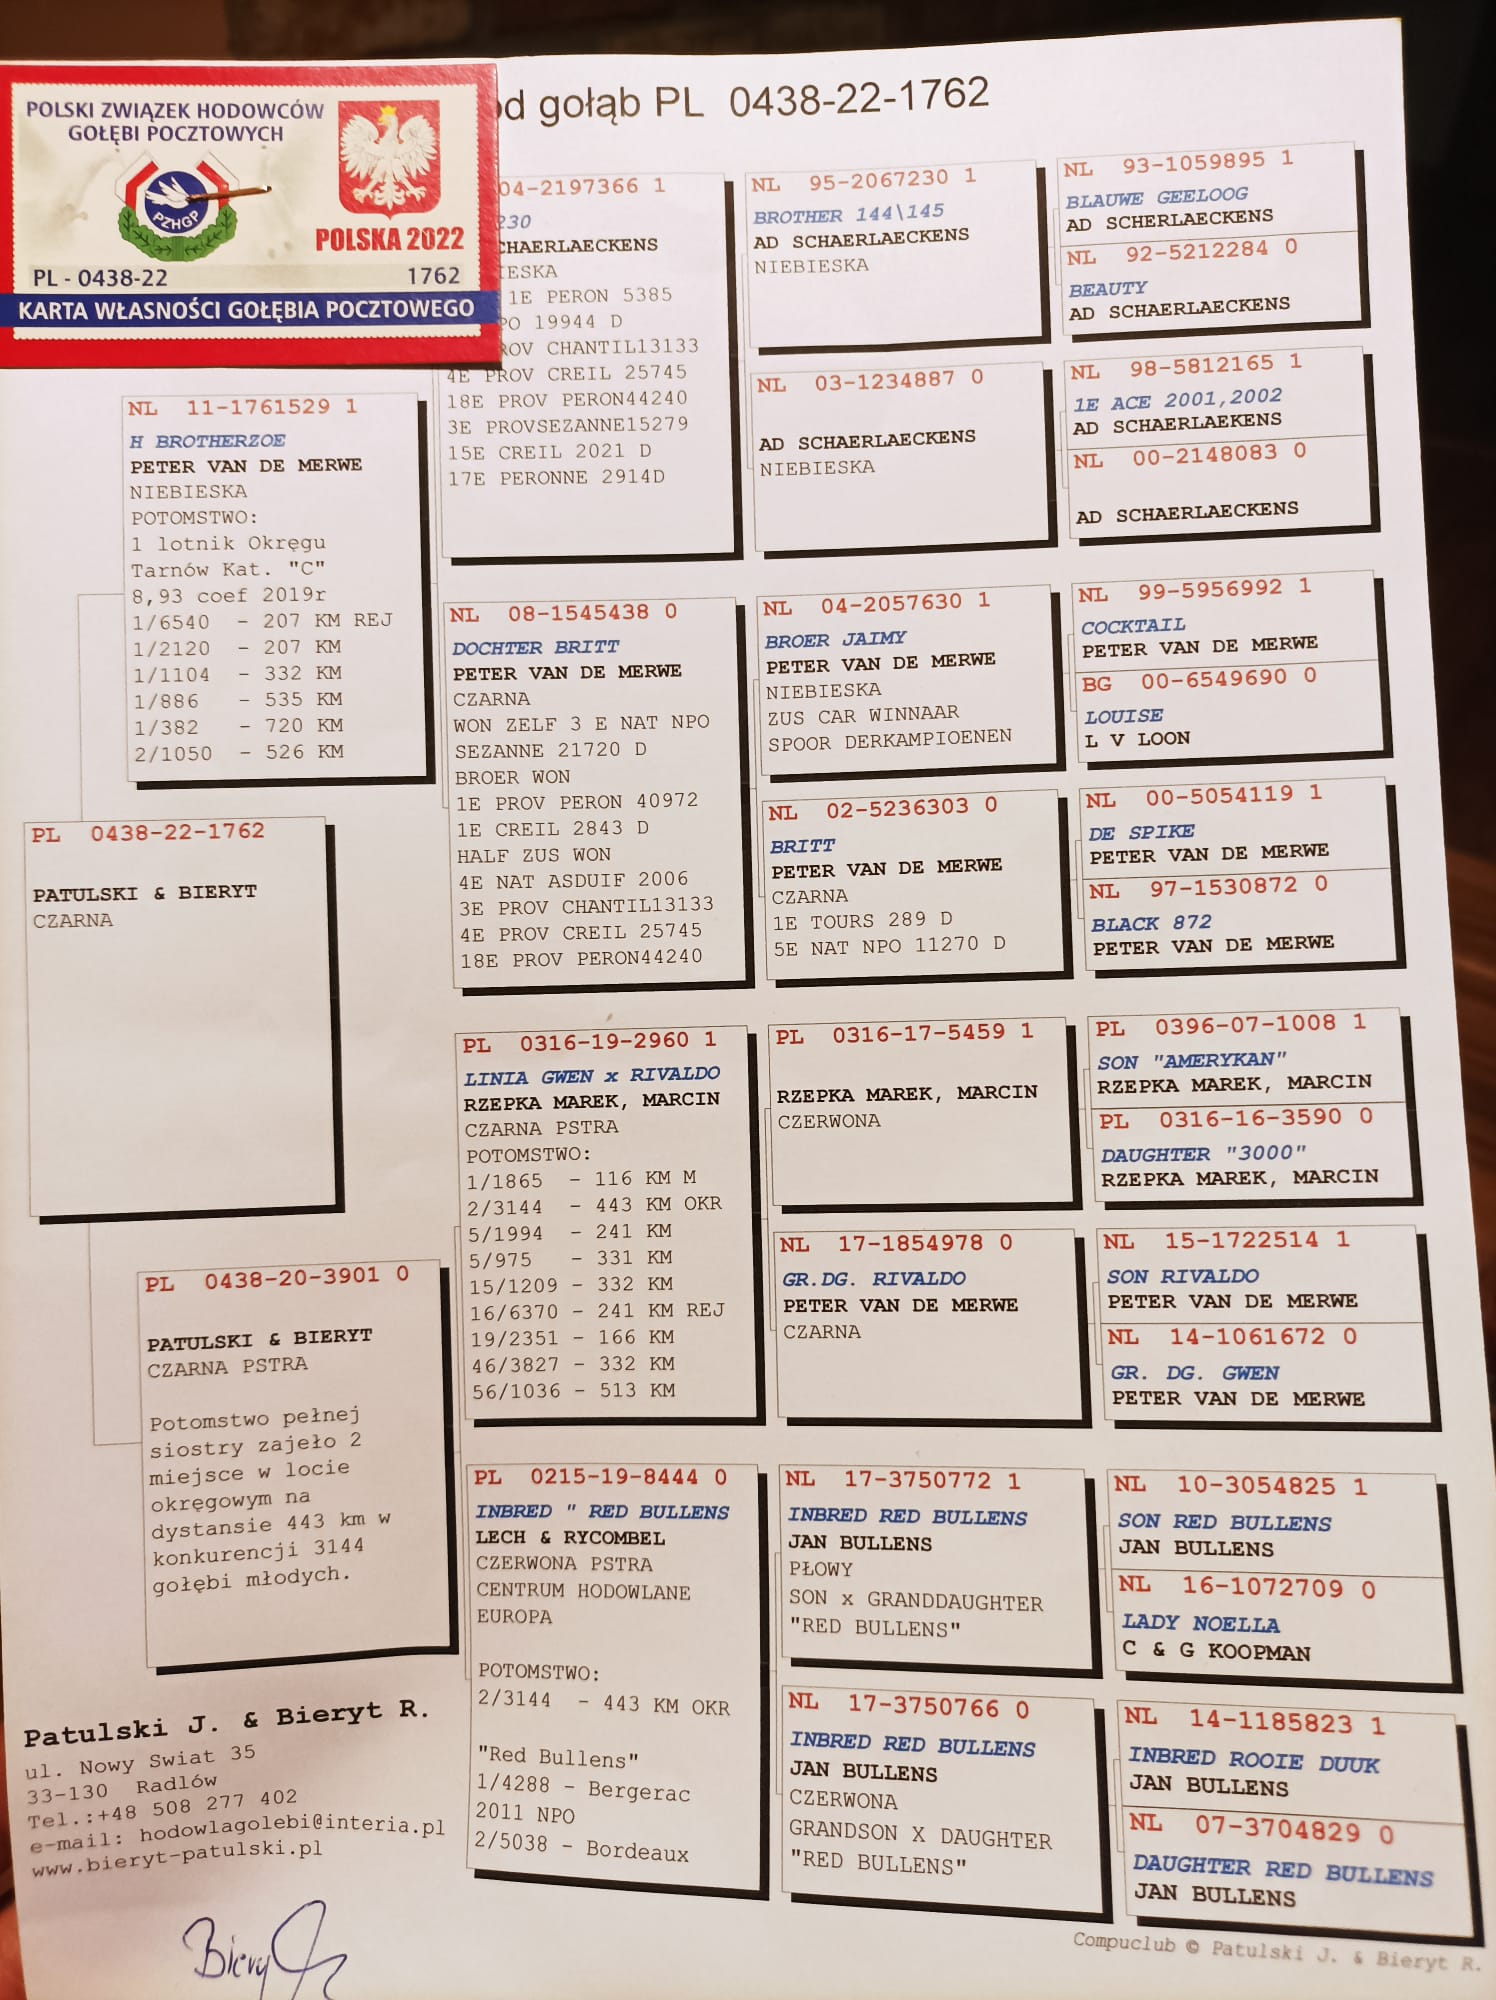 POLSKI ZWIĄZEK HODOWCÓW
GOŁĘBI POCZTOWYCH
PZHGP
POLSKA 2022
PL - 0438-22 1762
KARTA WŁASNOŚCI GOŁĘBIA POCZTOWEGO
gołąb PL 0438-22-1762
PL 0438-22-1762
PATULSKI & BIERYT
CZARNA
NL 11-1761529 1
H BROTHERZOE
PETER VAN DE MERWE
NIEBIESKA
POTOMSTWO:
1 lotnik Okręgu
Tarnów Kat. "C"
8,93 coef 2019r
1/6540 - 207 KM REJ
1/2120 - 207 KM
1/1104 - 332 KM
1/886 - 535 KM
1/382 - 720 KM
2/1050 - 526 KM
PL 0438-20-3901 0
PATULSKI & BIERYT
CZARNA PSTRA
Potomstwo pełnej
siostry zajeło 2
miejsce w locie
okręgowym na
dystansie 443 km w
konkurencji 3144
gołębi młodych.
04-2197366 1
230
CHAERLAECKENS
IESKA
1E PERON 5385
PO 19944 D
ROV CHANTIL13133
4E PROV CREIL 25745
18E PROV PERON44240
3E PROVSEZANNE15279
15E CREIL 2021 D
17E PERONNE 2914D
NL 08-1545438 0
DOCHTER BRITT
PETER VAN DE MERWE
CZARNA
WON ZELF 3 E NAT NPO
SEZANNE 21720 D
BROER WON
1E PROV PERON 40972
1E CREIL 2843 D
HALF ZUS WON
4E NAT ASDUIF 2006
3E PROV CHANTIL13133
4E PROV CREIL 25745
18E PROV PERON44240
PL 0316-19-2960 1
LINIA GWEN x RIVALDO
RZEPKA MAREK, MARCIN
CZARNA PSTRA
POTOMSTWO:
1/1865 - 116 KM M
2/3144 - 443 KM OKR
5/1994 - 241 KM
5/975 - 331 KM
15/1209 - 332 KM
16/6370 - 241 KM REJ
19/2351 - 166 KM
46/3827 - 332 KM
56/1036 - 513 KM
PL 0215-19-8444 0
INBRED " RED BULLENS
LECH & RYCOMBEL
CZERWONA PSTRA
CENTRUM HODOWLANE
EUROPA
POTOMSTWO:
2/3144 - 443 KM OKR
"Red Bullens"
1/4288 - Bergerac
2011 NPO
2/5038 - Bordeaux
NL 95-2067230 1
BROTHER 144\145
AD SCHAERLAECKENS
NIEBIESKA
NL 03-1234887 0
AD SCHAERLAECKENS
NIEBIESKA
NL 04-2057630 1
BROER JAIMY
PETER VAN DE MERWE
NIEBIESKA
ZUS CAR WINNAAR
SPOOR DERKAMPIOENEN
NL 02-5236303 0
BRITT
PETER VAN DE MERWE
CZARNA
1E TOURS 289 D
5E NAT NPO 11270 D
PL 0316-17-5459 1
RZEPKA MAREK, MARCIN
CZERWONA
NL 17-1854978 0
GR.DG. RIVALDO
PETER VAN DE MERWE
CZARNA
NL 17-3750772 1
INBRED RED BULLENS
JAN BULLENS
PŁOWY
SON x GRANDDAUGHTER
"RED BULLENS"
NL 17-3750766 0
INBRED RED BULLENS
JAN BULLENS
CZERWONA
GRANDSON X DAUGHTER
"RED BULLENS"
NL 93-1059895 1
BLAUWE GEELOOG
AD SCHERLAECKENS
NL 92-5212284 0
BEAUTY
AD SCHAERLAECKENS
NL 98-5812165 1
1E ACE 2001,2002
AD SCHAERLAEKENS
NL 00-2148083 0
AD SCHAERLAECKENS
NL 99-5956992 1
COCKTAIL
PETER VAN DE MERWE
BG 00-6549690 0
LOUISE
L V LOON
NL 00-5054119 1
DE SPIKE
PETER VAN DE MERWE
NL 97-1530872 0
BLACK 872
PETER VAN DE MERWE
PL 0396-07-1008 1
SON "AMERYKAN"
RZEPKA MAREK, MARCIN
PL 0316-16-3590 0
DAUGHTER "3000"
RZEPKA MAREK, MARCIN
NL 15-1722514 1
SON RIVALDO
PETER VAN DE MERWE
NL 14-1061672 0
GR. DG. GWEN
PETER VAN DE MERWE
NL 10-3054825 1
SON RED BULLENS
JAN BULLENS
NL 16-1072709 0
LADY NOELLA
C & G KOOPMAN
NL 14-1185823 1
INBRED ROOIE DUUK
JAN BULLENS
NL 07-3704829 0
DAUGHTER RED BULLENS
JAN BULLENS
Patulski J. & Bieryt R.
ul. Nowy Swiat 35
33-130 Radlów
Tel.:+48 508 277 402
e-mail: hodowlagolebi@interia.pl
www.bieryt-patulski.pl
Compuclub © Patulski J. & Bieryt R.